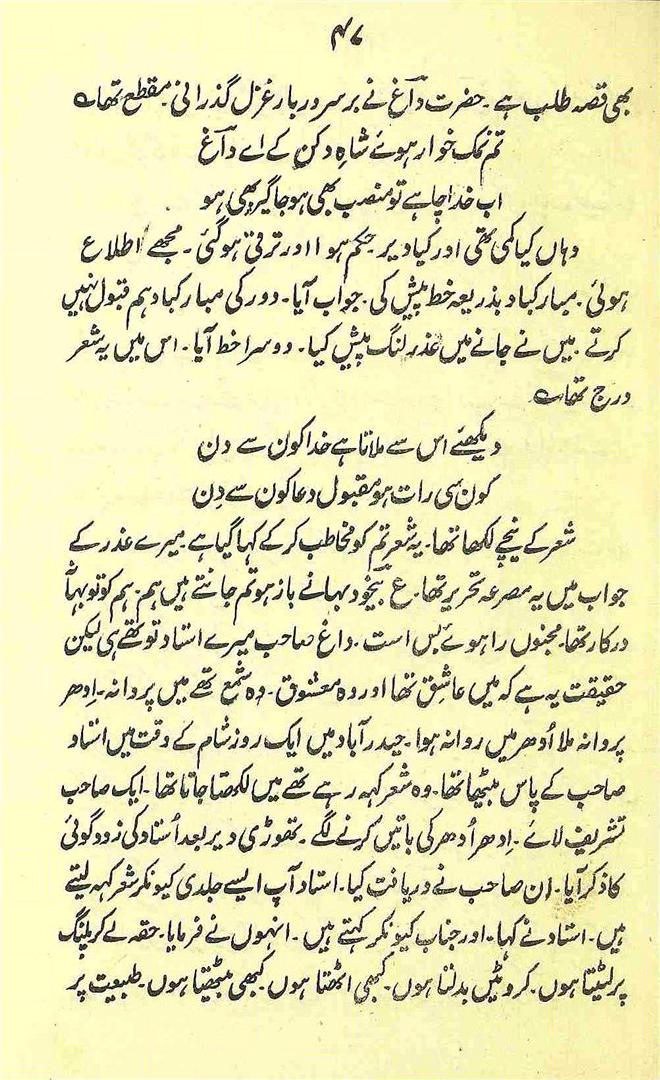 ۴۷
بھی قصہ طلب ہے۔ حضرت داغؔ نے برسر دربار غزل گذرانی۔ مقطع تھا ؎
تم نمک خوار ہوئے شاہِ دکن کے اے داغؔ
اب خدا چاہے تو منصب بھی ہو جاگیر بھی ہو
وہاں کیا کمی تھی اور کیا دیر۔ حکم ہوا اور ترقی ہو گئی۔ مجھے اطلاع
ہوئی۔ مبارکباد بذریعہ خط پیش کی۔ جواب آیا۔ دور کی مبارکباد ہم قبول نہیں
کرتے۔ میں نے جانے میں عذر لنگ پیش کیا۔ دوسرا خط آیا۔ اس میں یہ شعر
درج تھا ؎
دیکھئے اس سے ملاتا ہے خدا کون سے دن
کون سی رات ہو مقبول دعا کون سے دِن
شعر کے نیچے لکھا تھا۔ یہ شعر تم کو مخاطب کر کے کہا گیا ہے۔ میرے عذر کے
جواب میں یہ مصرعہ تحریر تھا۔ ع بیخودؔ بہانے باز ہو تم جانتے ہیں ہم۔ ہم کو تو بہانہ
درکار تھا۔ مجنوں را ہوئے بس است۔ داغ صاحب میرے استاد تو تھے ہی لیکن
حقیقت یہ ہے کہ میں عاشق تھا اور وہ معشوق۔ وہ شمع تھے میں پروانہ۔ اِدھر
پروانہ ملا اُدھر میں روانہ ہوا۔ حیدرآباد میں ایک روز شام کے وقت میں استاد
صاحب کے پاس بیٹھا تھا۔ وہ شعر کہہ رہے تھے میں لکھتا جاتا تھا۔ ایک صاحب
تشریف لائے۔ اِدھر اُدھر کی باتیں کرنے لگے۔ تھوڑی دیر بعد اُستاد کی زودگوئی
کا ذکر آیا۔ ان صاحب نے دریافت کیا۔ استاد آپ ایسے جلدی کیونکر شعر کہہ لیتے
ہیں۔ استاد نے کہا۔ اور جناب کیونکر کہتے ہیں۔ انہوں نے فرمایا۔ حقہ لے کر پلنگ
پر لیٹتا ہوں۔ کروٹیں بدلتا ہوں۔ کبھی اٹھتا ہوں۔ کبھی بیٹھتا ہوں۔ طبیعت پر